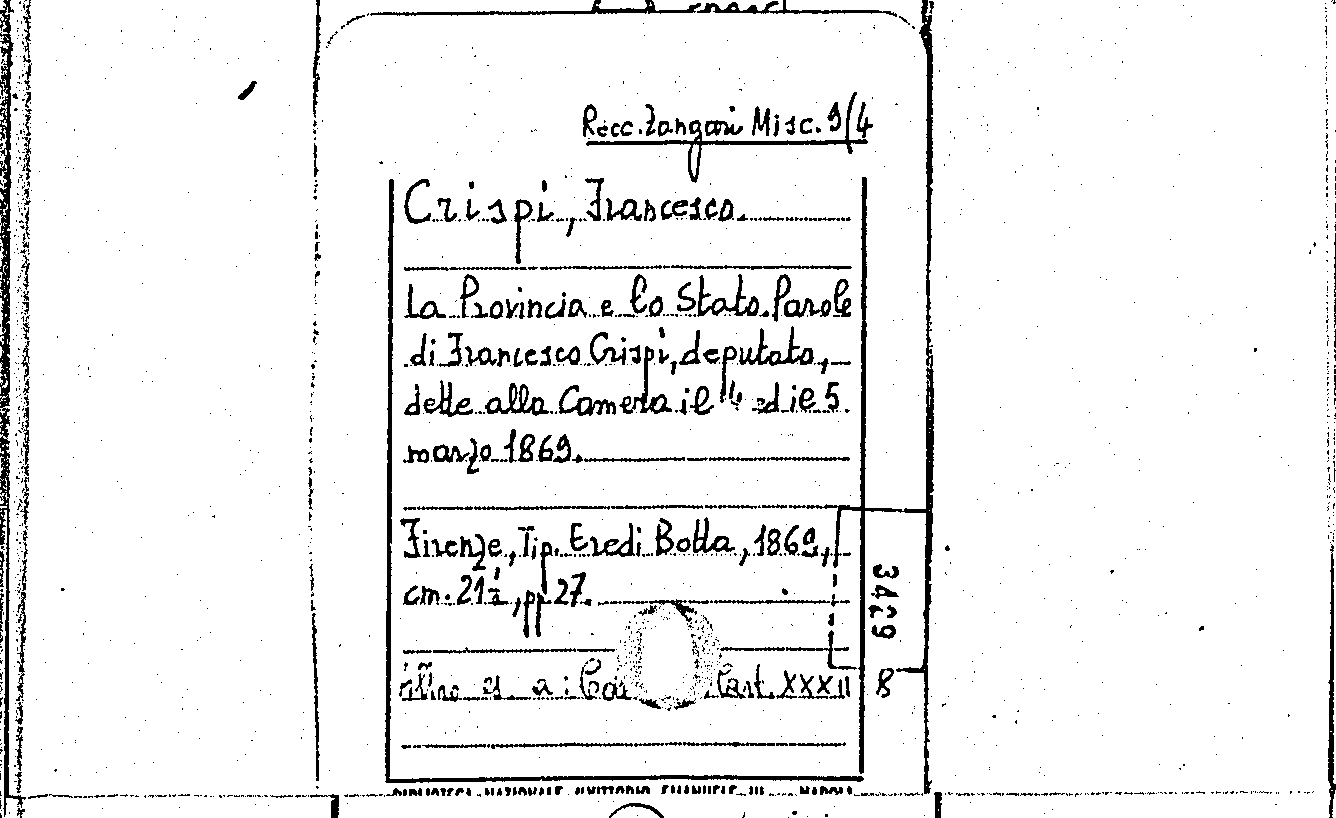 Racc. Zangari Misc. 9/4
Crispi, Francesco.
La Provincia e lo Stato. Parole
di Francesco Crispi, deputato,
dette alla Camera il 4 ed il 5
marzo 1869.
Firenze, Tip. Eredi Botta, 1869,
cm. 21½, pp 27.
3429
altro es. a: Cart. XXXII
B
BIBLIOTECA NAZIONALE "VITTORIO EMANUELE III" - NAPOLI